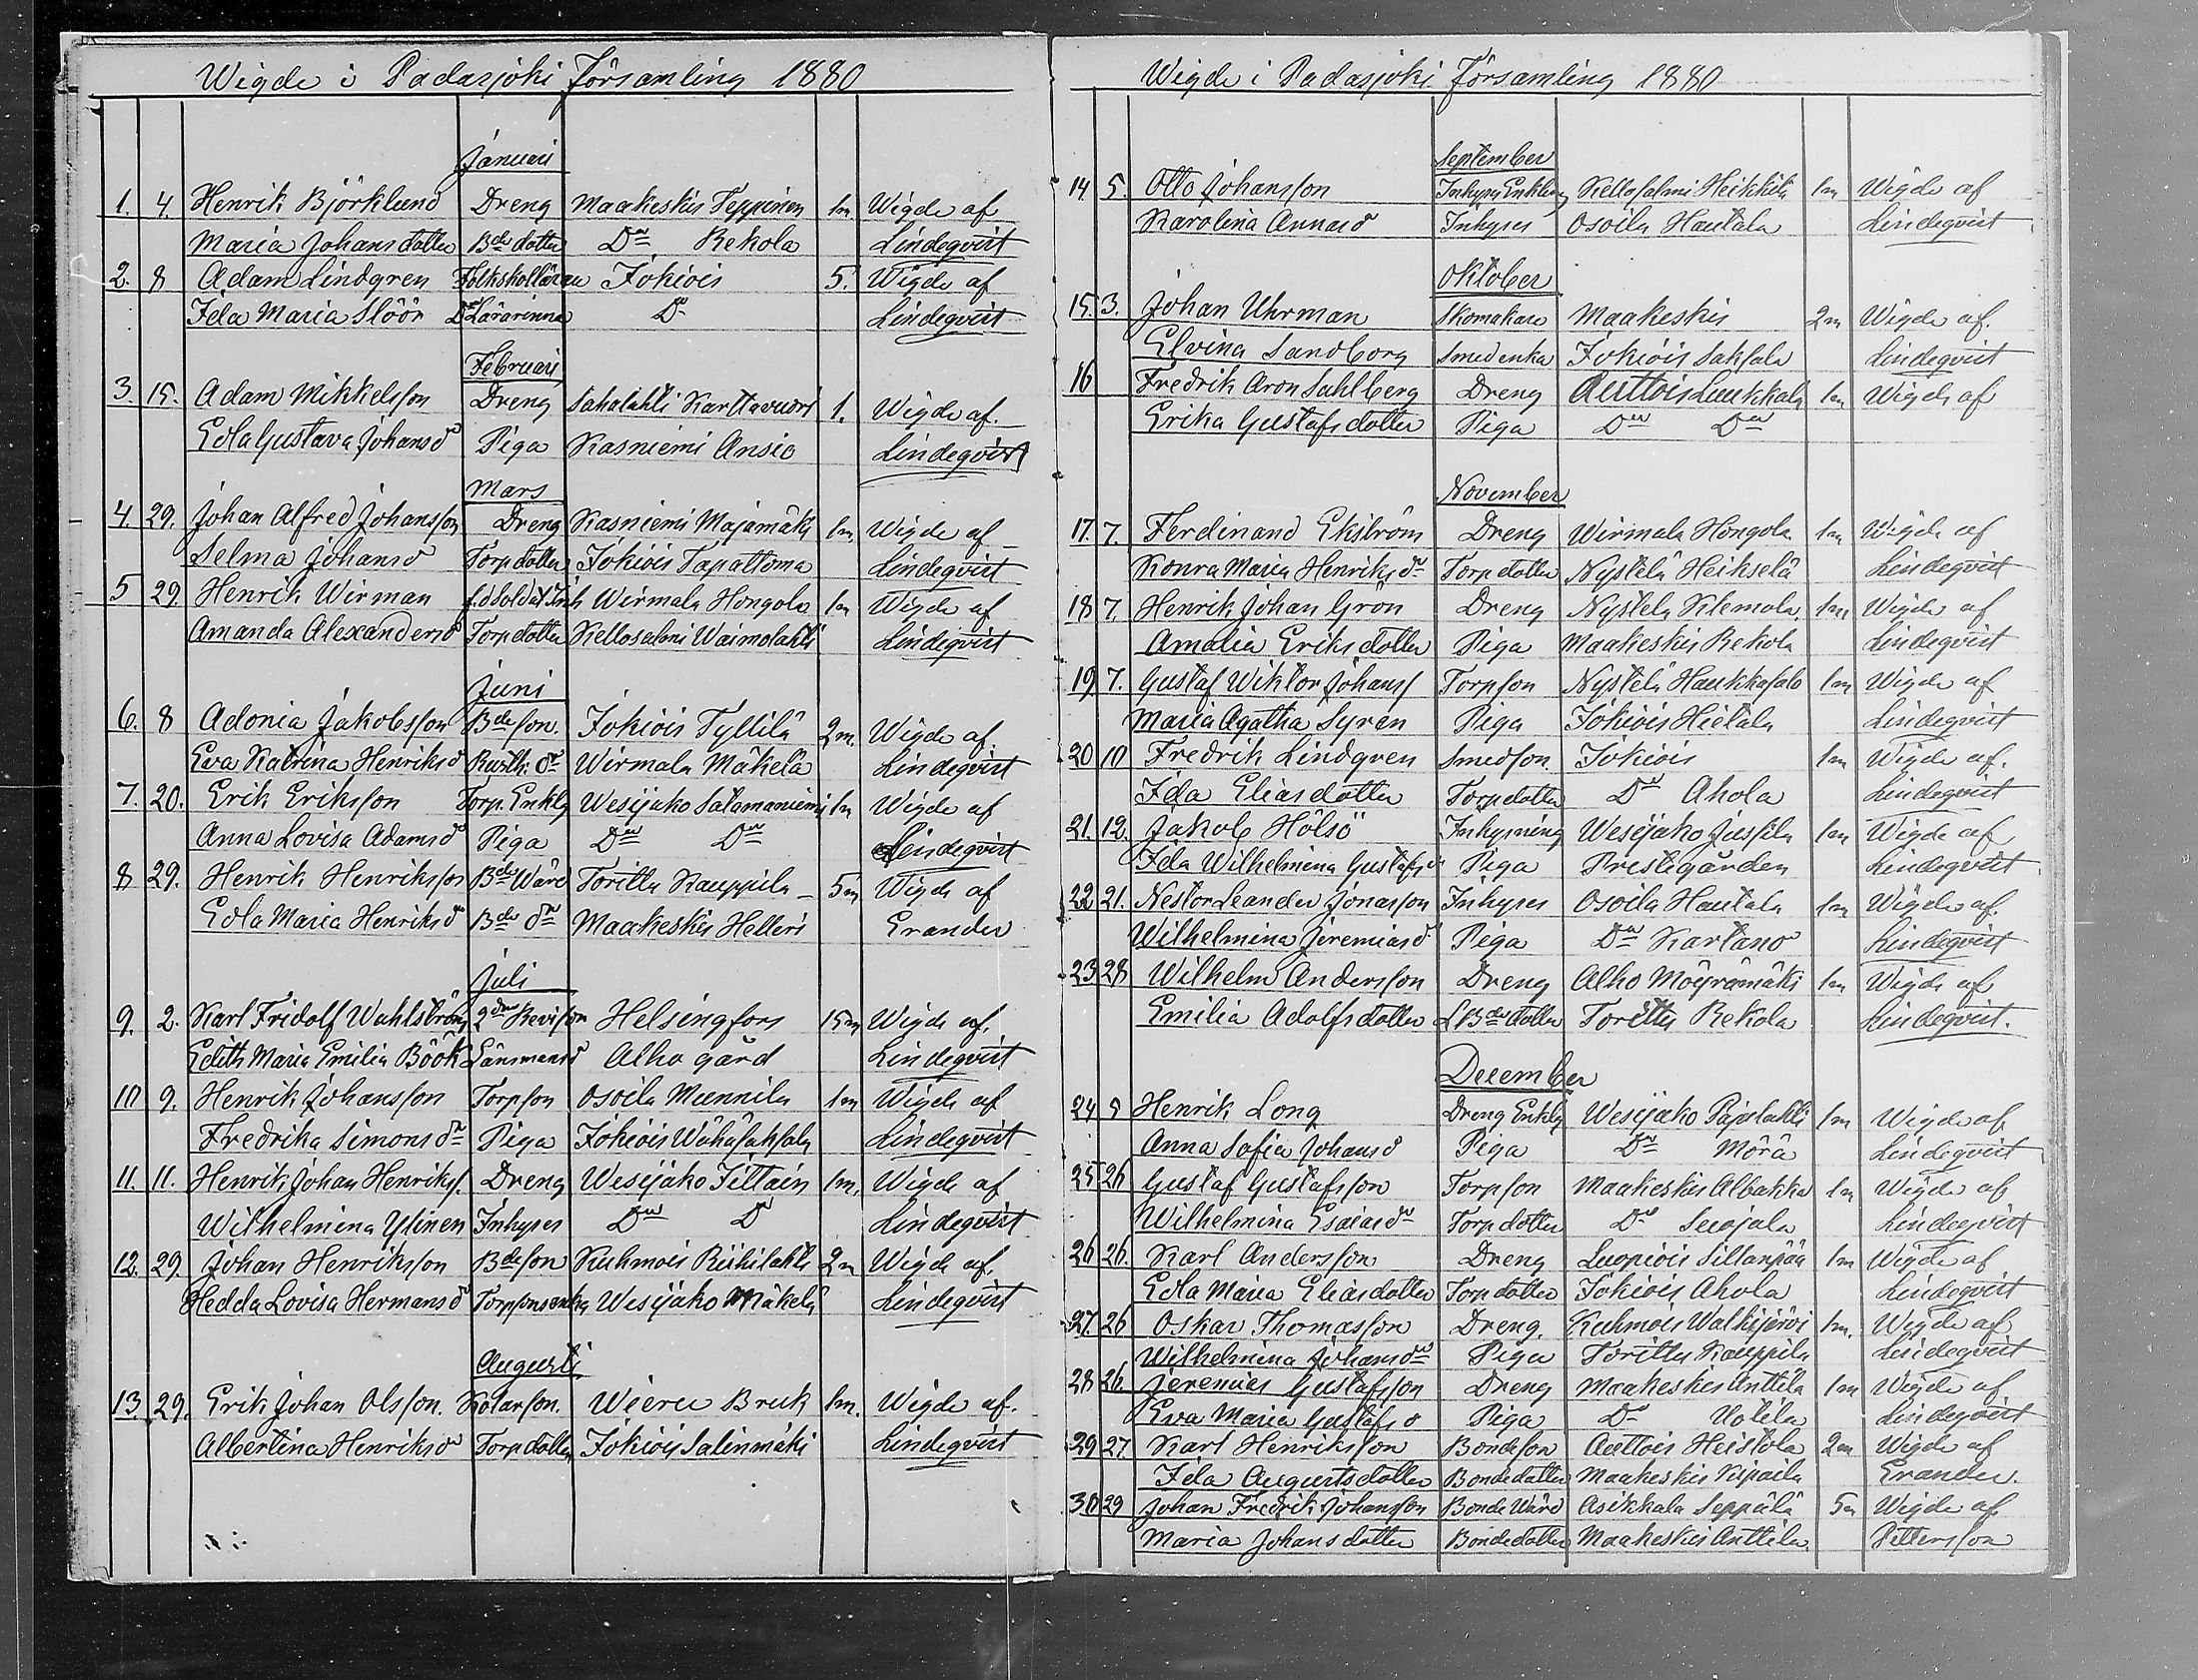 Wigde i Padasjoki Församling 1880
Januari
1. 4. Henrik Björklund Dreng Maakeskis Teppinen 1m Wigde af
Maria Johansdotter Bde dotter Do Rekola Lindeqvist
2. 8 Adam Lindgren Folkskollärare Jokiois 5. Wigde af
Ida Maria Slöör Do Lärarinna Do Lindeqvist
Februari
3 15. Adam Mikkelsson Dreng Sahalahti Karttavuori 1. Wigde af.
Edla Gustava Johansd Piga Kasniemi Ansio Lindeqvist
Mars
4. 29. Johan Alfred Johansson Dreng Kasniemi Majamäki 1m Wigde af
Selma Johansd Torpdotter Jokiois Tapattoma Lindeqvist
5 29. Henrik Wirman f.d Soldat Wirmala Hongola 1m Wigde af
Amanda Alexandersd Torpdotter Kellosalmi Waimolahti Lindeqvist
Juni
6. 8 Adonia Jakobsson Bdeson. Jokiois Tyllilä 2m. Wigde af.
Eva Katrina Henriksd Rusth. dr Wirmala Mäkelä Lindeqvist
7. 20. Erik Eriksson Torp. Enkling Wesijako Salamaniemi 1m Wigde af
Anna Lovisa Adamsd Piga Do Do Lindeqvist
8 29. Henrik Henriksson Bde Wärd Toritta Kauppila 5m Wigde af
Edla Maria Henriksd Bde dr Maakeskis Helleri Grander
Juli
9. 2. Karl Fridolf Wahlström Helsingfors 15m Wigde af.
Edith Maria Emilia Böök Länsmansd Alho gård Lindeqvist
10 9. Henrik Johansson Torpson Osoila Munnila 1m Wigde af
Fredrika Simons dr Piga Jokiois Wähäsaksala Lindeqvist
11. 11. Henrik Johan Henrikss. Dreng Wesijako Tittain 1m. Wigde af
Wilhelmina Ylinen Inhyses Do Do Lindeqvist
12. 29. Johan Henriksson Bdeson Kuhmois Riihilahti 2m Wigde af.
Hedda Lovisa Hermansd Torpsonsenka Wesijako Mäkelä Lindeqvist
Augusti
13. 29. Erik Johan Olsson. Kolarson. Wieru Bruk 1m. Wigde af.
Albertina Henriksd Torpdotter Jokiois Salinmäki Lindeqvist
Wigde i Padasjoki Församling 1880
September
14 5. Otto Johansson Inhyses Enkling Kellosalmi Heikkilä 1m Wigde af
Karolina Annasd Inhyses Osoila Hautala Lindeqvist
Oktober
15 3. Johan Uhrman Skomakare Maakeskis 2m Wigde af.
Elvina Sandborg Smedenka Jokiois Saksala Lindeqvist
16 Fredrik Aron Sahlberg Dreng Auttois Luukkala 1m Wigde af
Erika Gustafsdotter Piga Do Do
November
17. 7. Ferdinand Ekström Dreng Wirmala Hongola 1m Wigde af
Konra Maria Henriks dr Torpdotter Nystelä Heikselä Lindeqvist
18 7. Henrik Johan Grön Dreng Nystelä Klemola. 1m Wigde af
Amalia Eriksdotter Piga Maakeskis Rekola Lindeqvist
19 7. Gustaf Wiktor Johanss Torpson Nystelä Haukkasalo 1m Wigde af
Maria Agatha Syren Piga Jokiois Hietala Lindeqvist
20 10 Fredrik Lindqren Smedson Jokiois 1m Wigde af.
Ida Eliasdotter Torpdotter Do Ahola Lindeqvist
21. 12. Jakob Hölsö Inhysning Wesijako Jussila 1m Wigde af
Ida Wilhelmina Gustafsd Piga Prestegården Lindeqvist
22 21. Nestor Leander Jonasson Inhyses Osoila Hautala 1m Wigde af.
Wilhelmina Jeremiasd Piga Do Kartano Lindeqvist
23 28 Wilhelm Andersson Dreng Alho Möyrämäki 1m Wigde af
Emilia Adolfsdotter L Bde dotter Toritty Rekola Lindeqvist.
December
24 5 Henrik Long Dreng Enkling Wesijako Pajalahti 1m Wigde af
Anna Sofia Johansd Piga Do Mörä Lindeqvist
25 26 Gustaf Gustafsson Torpson Maakeskis Albakka 1m Wigde af
Wilhelmina Esaiasdr Torpdotter Do Suojala Lindeqvist
26 26. Karl Andersson Dreng Luopiois Sillanpää 1m Wigde af
Edla Maria Eliasdotter Torpdotter Jokiois Ahola Lindeqvist
27. 26 Oskar Thomasson Dreng. Kuhmois Walkijärvi 1m. Wigde af
Wilhelmina Johansdr Piga Toritty Kauppila Lindeqvist
28 26 Jeremias Gustafsson Dreng Maakeskis Anttila 1m Wigde af
Eva Maria Gustafsd Piga Do Uotila Lindeqvist
29 27. Karl Henriksson Bondeson Auttois Heistola 2m Wigde af
Ida Augustsdotter Bondedotter Maakeskis Kipaila Grander.
30 29 Johan Fredrik Johansson Bonde Wärd Asikkala Seppälä 5m Wigde af.
Maria Johansdotter Bondedotter Maakeskis Anttila Pettersson